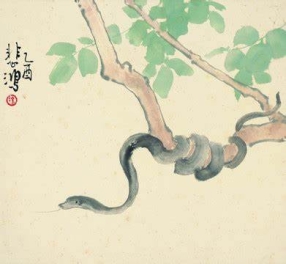 乙酉
悲鴻